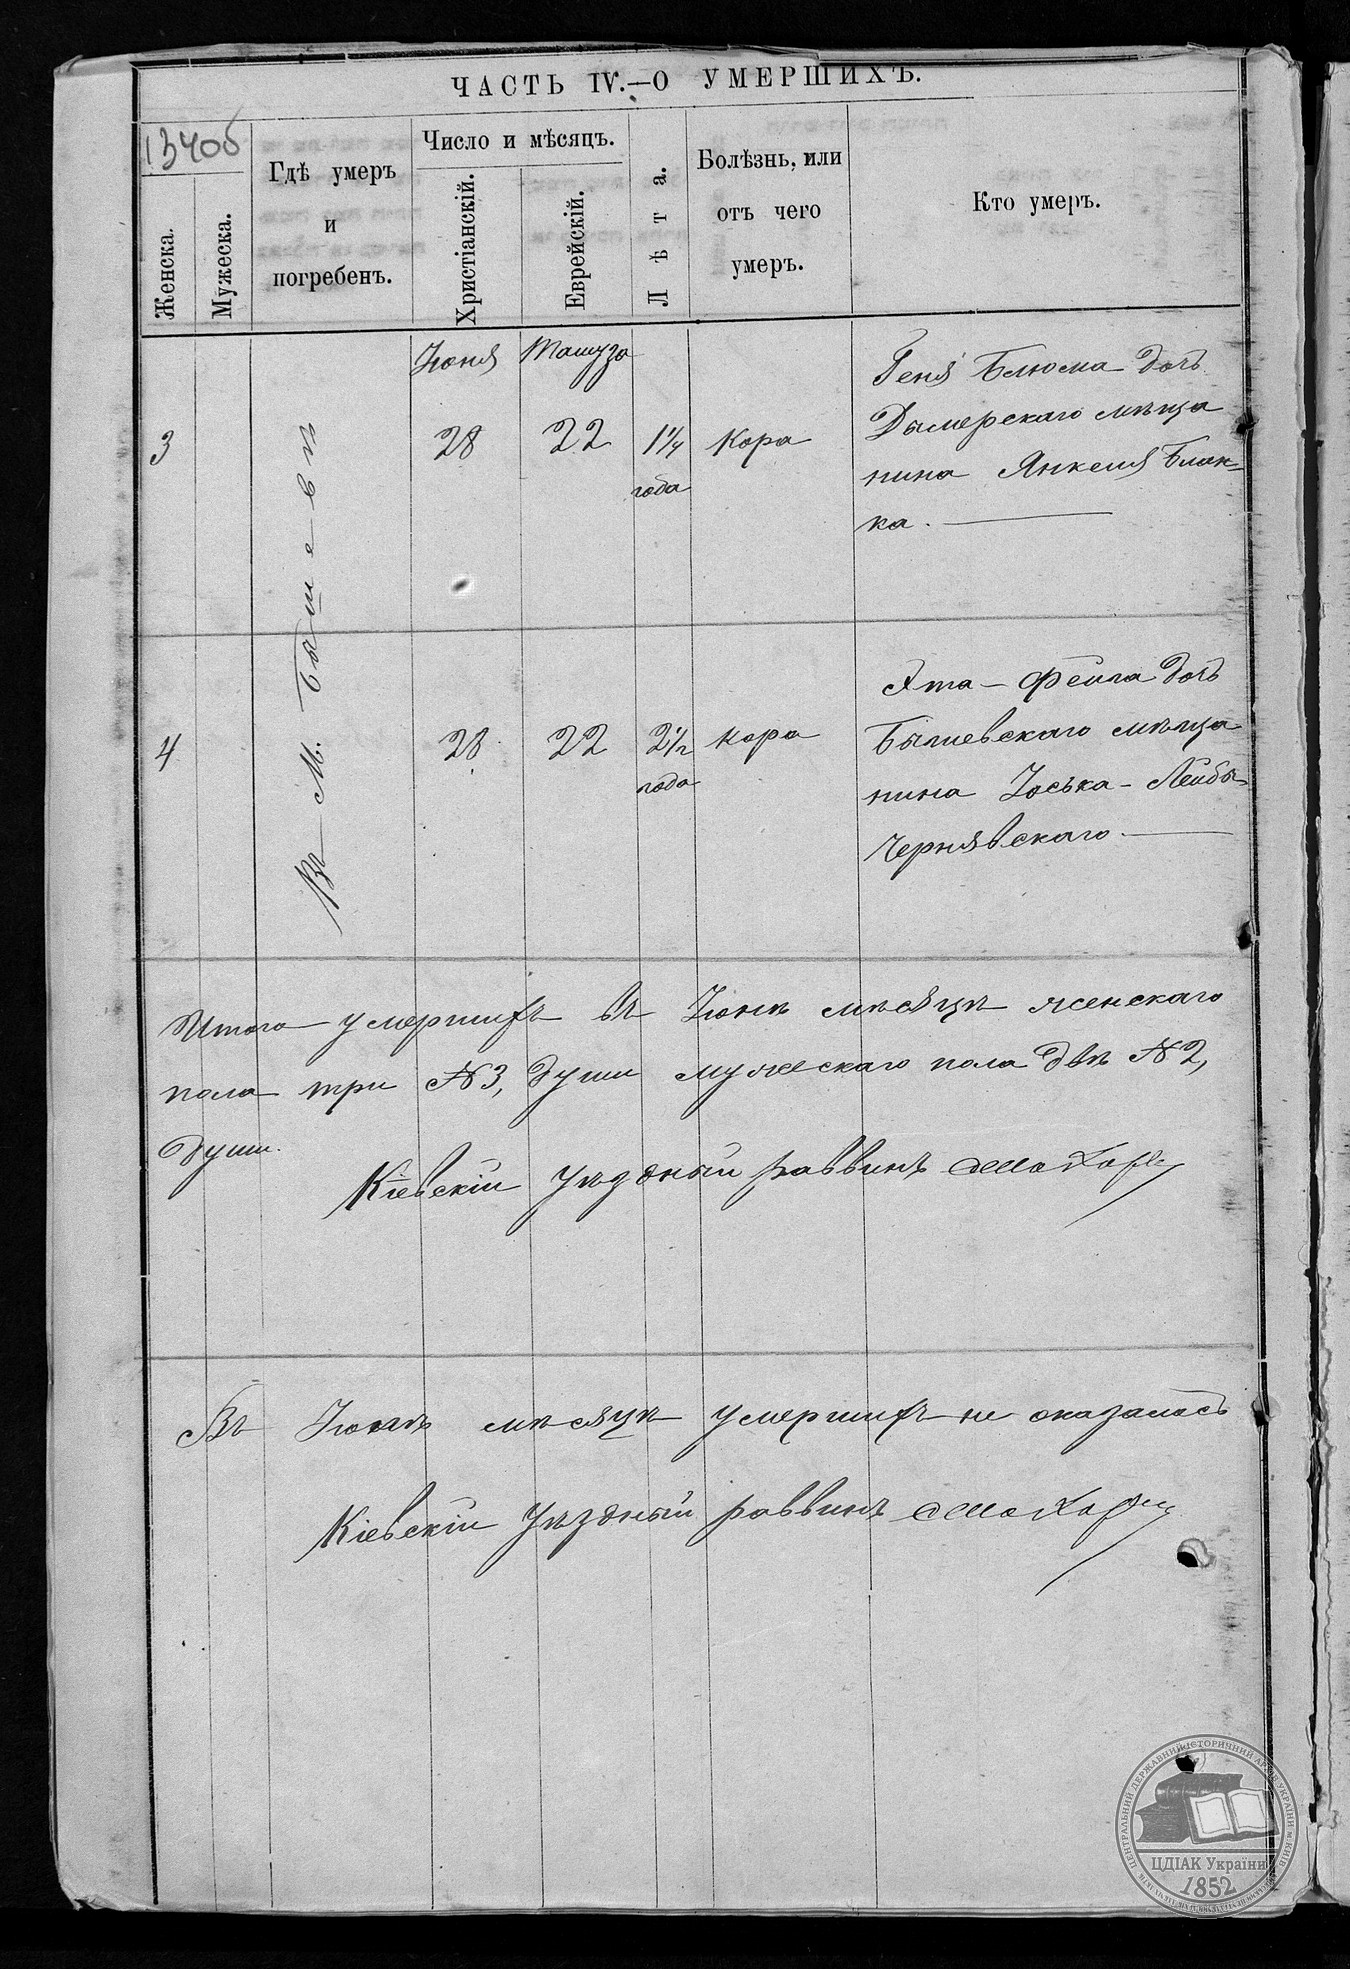 ЧАСТЬ IV.—О УМЕРШИХЪ.
1340б
Женска.
Мужеска.
Гдѣ умеръ
и
погребенъ.
Число и мѣсяцъ.
Христіанскій.
Еврейскій.
Лѣта.
Болѣзнь, или
отъ чего
умеръ.
Кто умеръ.
Въ М. Бышевѣ
Іюня Тамуза
3 28 22 1¼ года Кора
Геня Блюма дочь
Дымерскаго мѣща
нина Янкеля Блан-
ка.
4 28 22 2½ года Кора
Ята-Фейга дочь
Бышевскаго мѣща
нина Іоська-Лейбы
Чернявскаго
Итого умершихъ въ Іюнѣ мѣсяцѣ женскаго
пола три №3, души мужескаго пола двѣ №2,
души.
Кіевскій Уѣздный раввинъ
Въ Іюлѣ мѣсяцѣ умершихъ не оказалось
Кіевскій Уѣздный раввинъ
ЦЕНТРАЛЬНИЙ ДЕРЖАВНИЙ ІСТОРИЧНИЙ АРХІВ УКРАЇНИ, м. КИЇВ
ЦДІАК України
1852